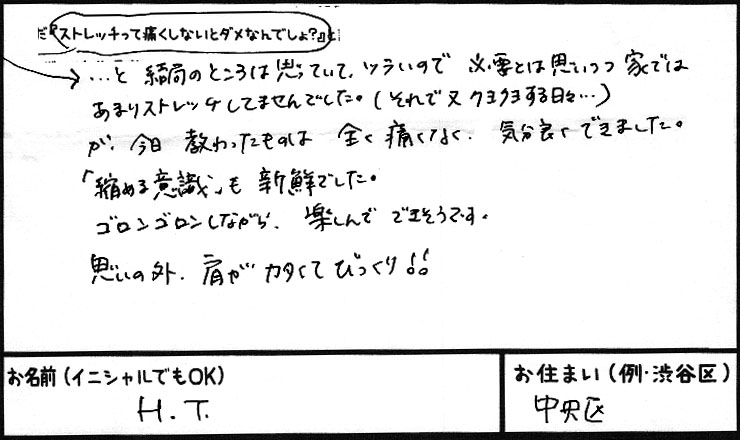 『ストレッチって痛くしないとダメなんでしょ?』
…と 結局のところは思っていて、ツラいので 必要とは思いつつ 家では
あまりストレッチしてませんでした。(それで又クヨクヨする日々…)
が、今日 教わったものは 全く痛くなく、気分良くできました。
「縮める意識」も 新鮮でした。
ゴロンゴロンしながら、楽しんで できそうです。
思いの外、肩がカタくてびっくり!!
お名前(イニシャルでもOK)
お住まい(例・渋谷区)
H.T.
中央区